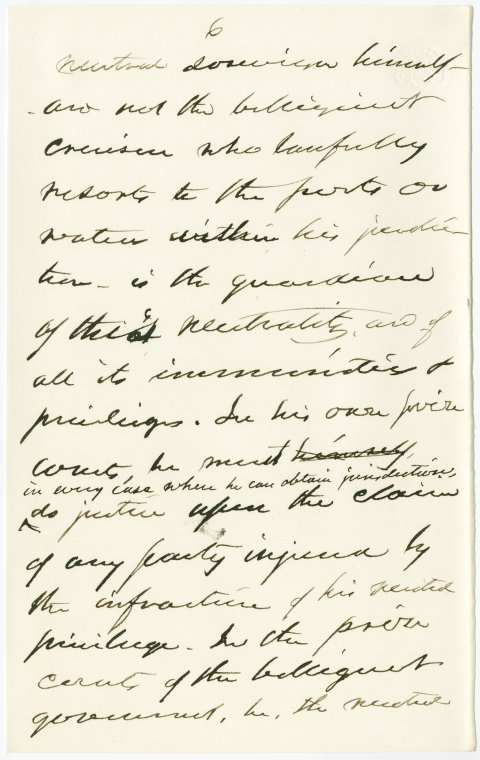 6
neutral sovereign himself
- and not the belligerent
cruiser who lawfully
resorts to the ports or
waters within his jurisdic-
tion - is the guardian
of this neutrality, and of
all its immunities &
privileges. In his own prize
courts, he must himself,
in every case where he can obtain jurisdiction,
do justice upon the claim
of any party injured by
the infraction of his neutral
privilege. In the prize
courts of the belligerent
government, he, the neutral